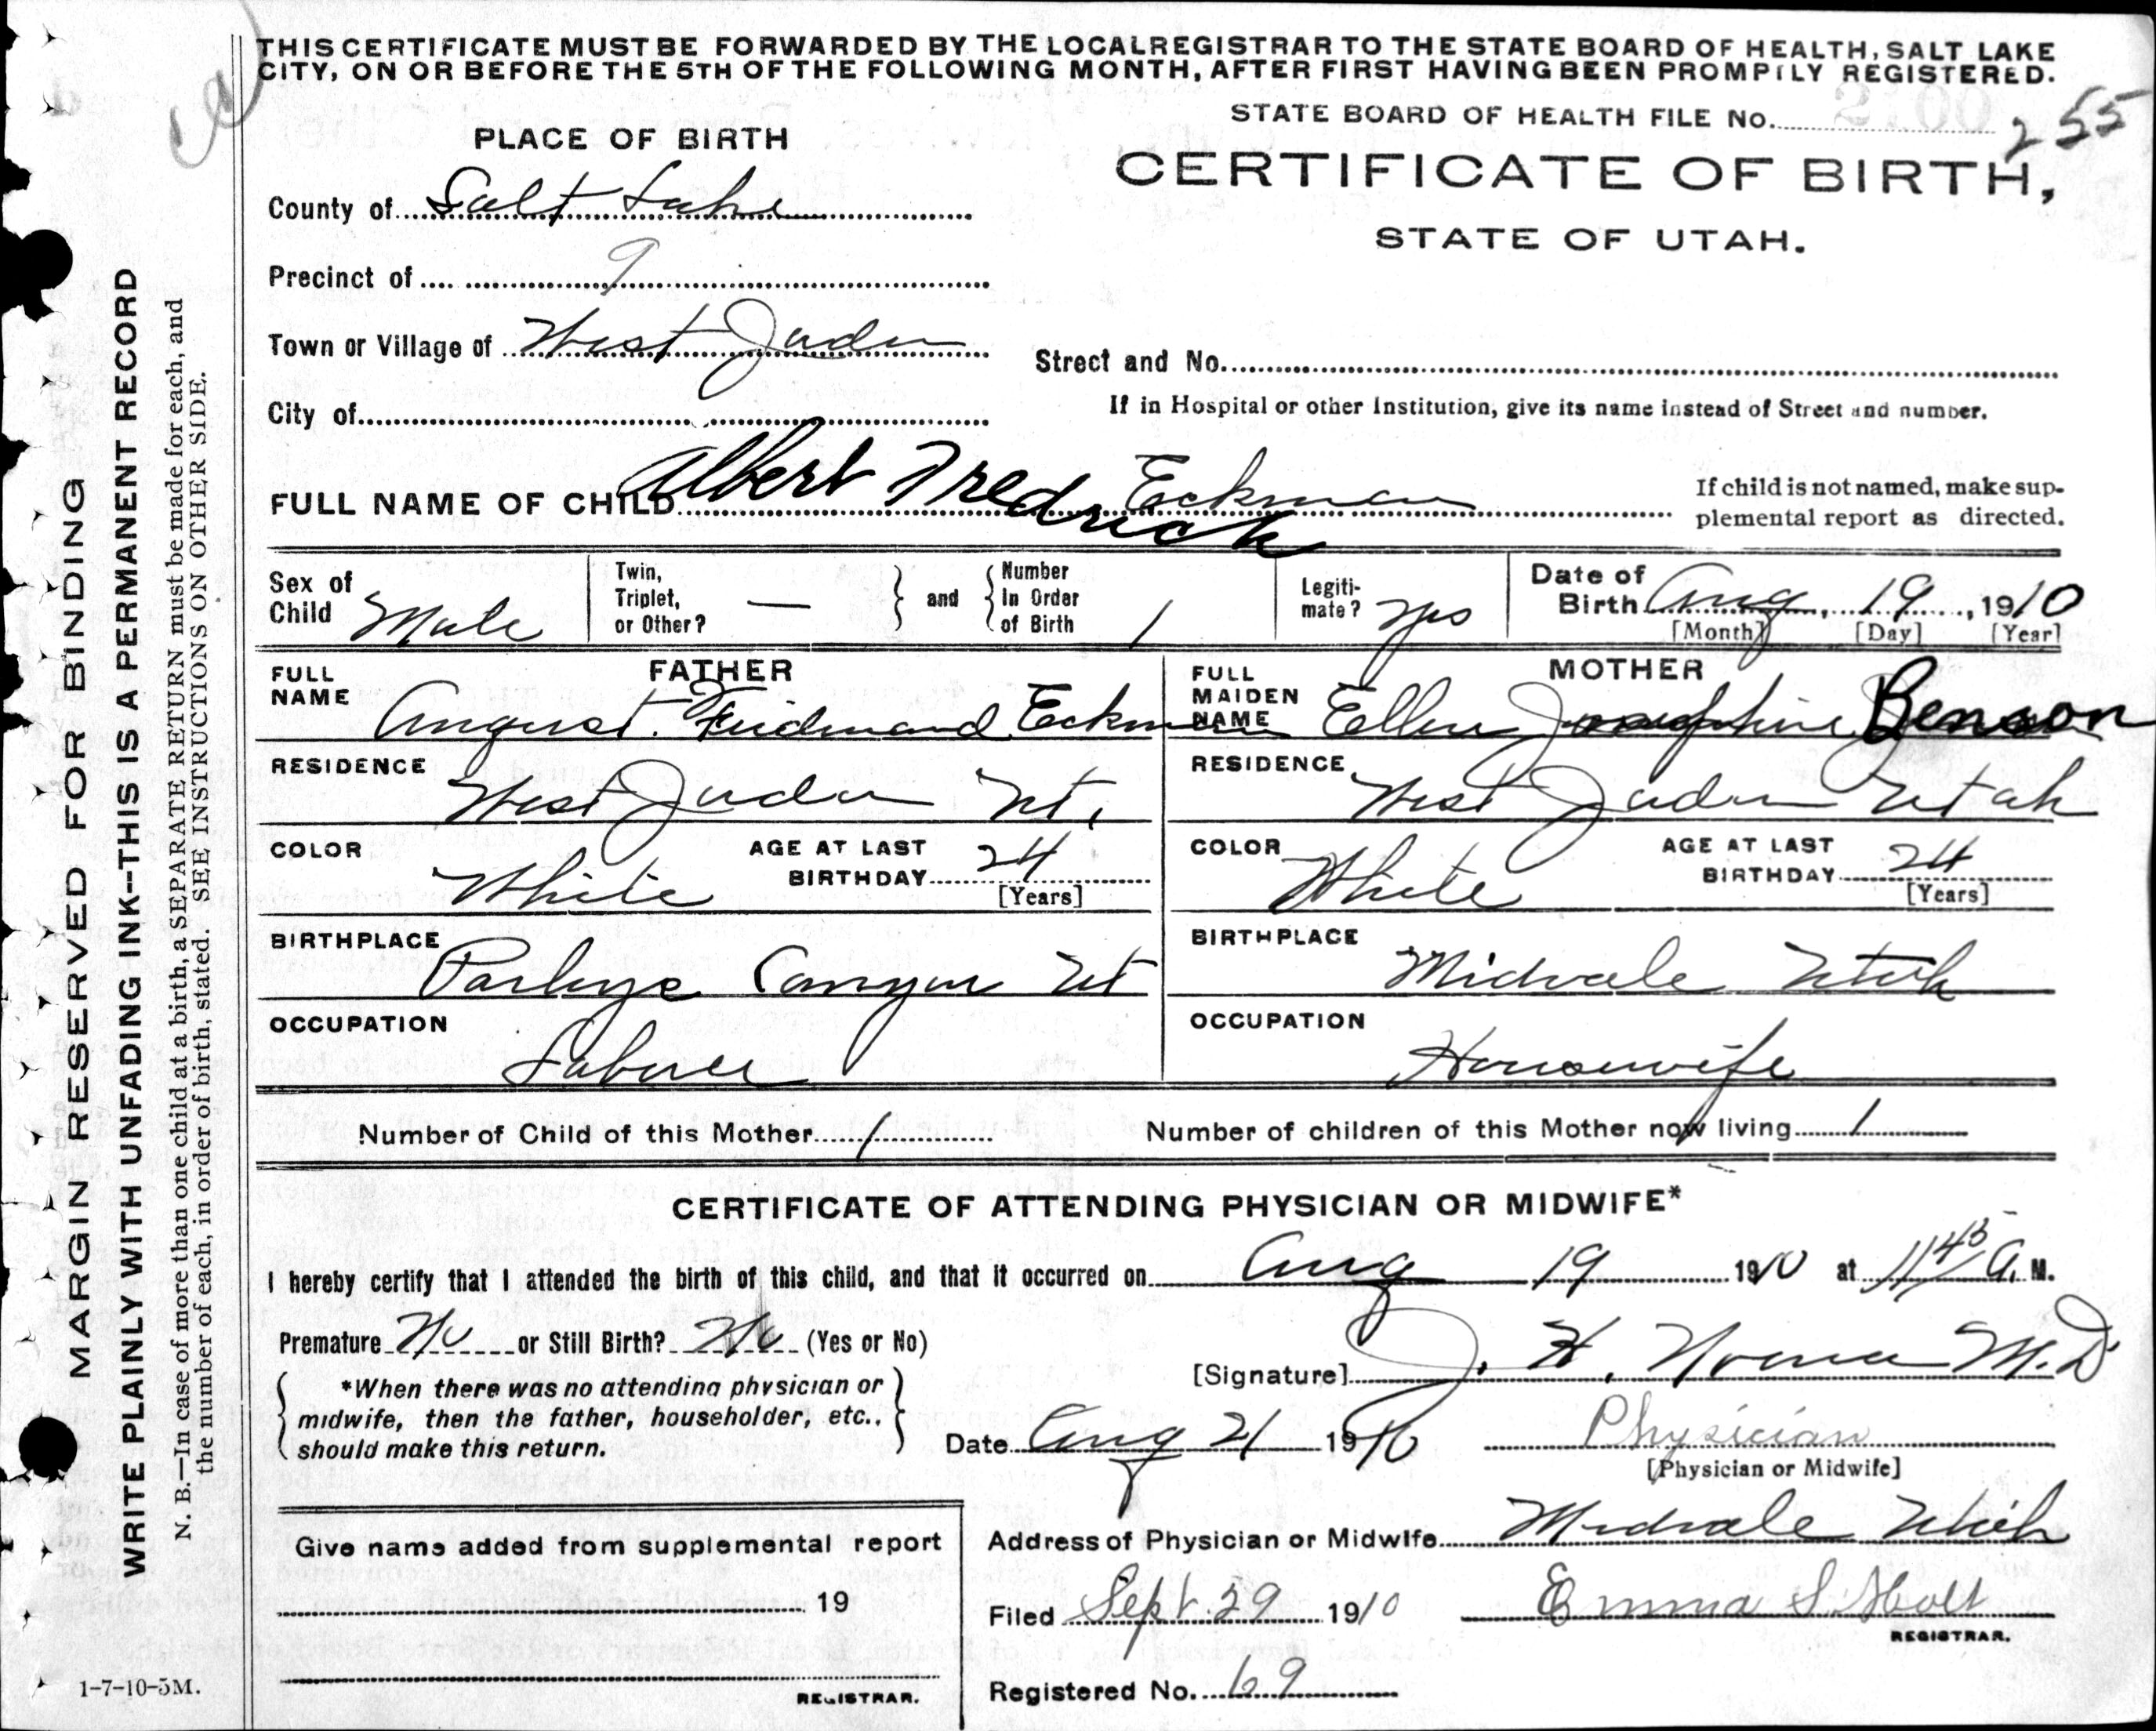 THIS CERTIFICATE MUST BE FORWARDED BY THE LOCAL REGISTRAR TO THE STATE BOARD OF HEALTH, SALT LAKE
CITY, ON OR BEFORE THE 5TH OF THE FOLLOWING MONTH, AFTER FIRST HAVING BEEN PROMPTLY REGISTERED.
STATE BOARD OF HEALTH FILE No. 255
PLACE OF BIRTH
CERTIFICATE OF BIRTH,
STATE OF UTAH.
County of Salt Lake
Precinct of 9
Town or Village of West Jordan
Street and No.
City of
If in Hospital or other Institution, give its name instead of Street and number.
FULL NAME OF CHILD Albert Fredrick Eckman
If child is not named, make sup-
plemental report as directed.
Sex of Child Male
Twin, Triplet, or Other? —
and
Number In Order of Birth 1
Legiti-mate? yes
Date of Birth Aug, 19, 1910
[Month] [Day] [Year]
FATHER
FULL NAME August Ferdinand Eckman
MOTHER
FULL MAIDEN NAME Ellen Josephine Benson
RESIDENCE West Jordan Ut,
RESIDENCE West Jordan Utah
COLOR White
AGE AT LAST BIRTHDAY 24 [Years]
COLOR White
AGE AT LAST BIRTHDAY 24 [Years]
BIRTHPLACE Parleys Canyon Ut
BIRTHPLACE Midvale Utah
OCCUPATION Laborer
OCCUPATION Housewife
Number of Child of this Mother 1
Number of children of this Mother now living 1
CERTIFICATE OF ATTENDING PHYSICIAN OR MIDWIFE*
I hereby certify that I attended the birth of this child, and that it occurred on Aug 19 1910 at 11 45 A. M.
Premature No or Still Birth? No (Yes or No)
[Signature] J. H. M.D
*When there was no attending physician or
midwife, then the father, householder, etc.,
should make this return.
Date Aug 21 1910
Physician
[Physician or Midwife]
Address of Physician or Midwife Midvale Utah
Give name added from supplemental report
19
REGISTRAR.
Filed Sept. 29 1910 Emma S. Holt
REGISTRAR.
Registered No. 69
1-7-10-5M.
MARGIN RESERVED FOR BINDING
WRITE PLAINLY WITH UNFADING INK--THIS IS A PERMANENT RECORD
N. B.—In case of more than one child at a birth, a SEPARATE RETURN must be made for each, and
the number of each, in order of birth, stated. SEE INSTRUCTIONS ON OTHER SIDE.